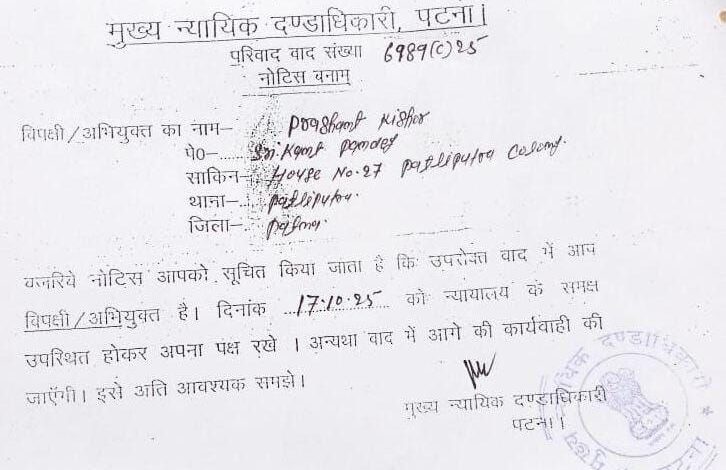 मुख्य न्यायिक दण्डाधिकारी, पटना।
परिवाद वाद संख्या 6989(C)25
नोटिस बनाम्
विपक्षी/अभियुक्त का नाम- Prashant Kishor
पे0-...... Sri.Kant Pandey
साकिन- House No.27 Patliputra Colony.
थाना-... Patliputra.
जिला-... Patna.
बजरिये नोटिस आपको सूचित किया जाता है कि उपरोक्त वाद में आप
विपक्षी/अभियुक्त है। दिनांक ...17.10.25... को न्यायालय के समक्ष
उपस्थित होकर अपना पक्ष रखे । अन्यथा वाद में आगे की कार्यवाही की
जाएँगी। इसे अति आवश्यक समझे।
मुख्य न्यायिक दण्डाधिकारी
पटना।।
मुख्य न्यायिक दण्डाधिकारी